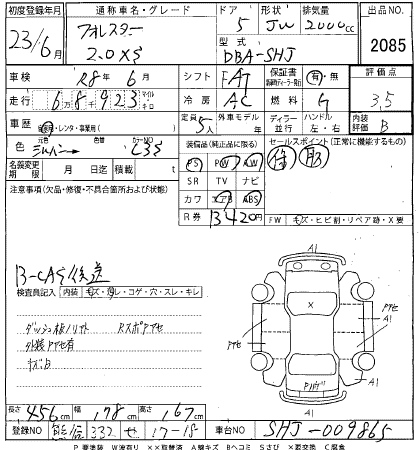 初度登録年月 通称車名・グレード ドア 形状 排気量 出品NO.
23/6月 フォレスター 2.0XS 5 JW 2000cc 2085
型式
DBA-SHJ
車検 R8年6月 シフト FAT 保証書 有・無 評価点
走行 68923 マイル キロ 冷房 AC 燃料 G 3.5
車歴 自家用・レンタ・事業用( ) 定員 5人 外車モデル ディラー 並行 ハンドル 左・右 内装評価 B
色 シルバー 色替 カラーNO C3S 装備品(純正品に限る) セールスポイント(正常に機能するもの)
名義変更期限 月 日 迄 積載 t PS PW AW 保 取
注意事項(欠品・修復・不具合箇所および状態) SR TV ナビ
カワ エアB ABS
R券 13420円 FW キズ・ヒビ割・リペア跡・X要
B-CAS後送
検査員記入 内装 キズ・汚レ・コゲ・穴・スレ・キレ
ダッシュ板ノリト Rスポアセ
外装アセ有
キズ、凹
A1
アセ
アセ
A1
X
A1
A1
長さ 456cm 幅 178cm 高さ 167cm
登録NO 332 せ 17-18 車台NO SHJ-009865
P要塗装 W波有り XX取替済 Aキズ Bヘコミ Sさび X要交換 C腐食